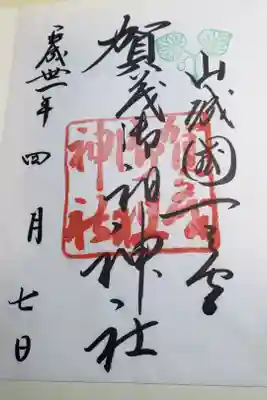 山城國一之宮
賀茂御祖神社
平成卅一年四月七日
賀茂御祖神社